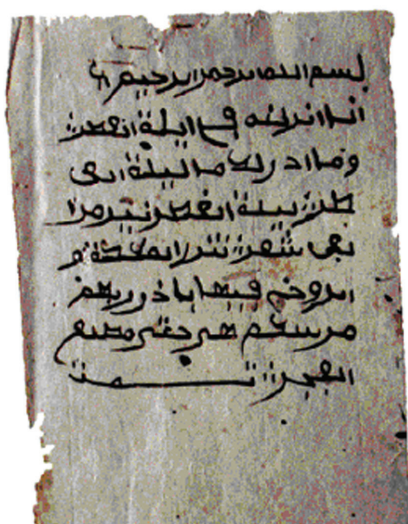 بسم الله الرحمن الرحيم
انا انزلنه في ليلة القدر
وما ادرىك ما ليلة الق
در ليلة القدر خير من ا
لف شهر تنزل الملئكة و
الروح فيها باذن ربهم
من سلم هي حتى مطلع
الفجر تمت